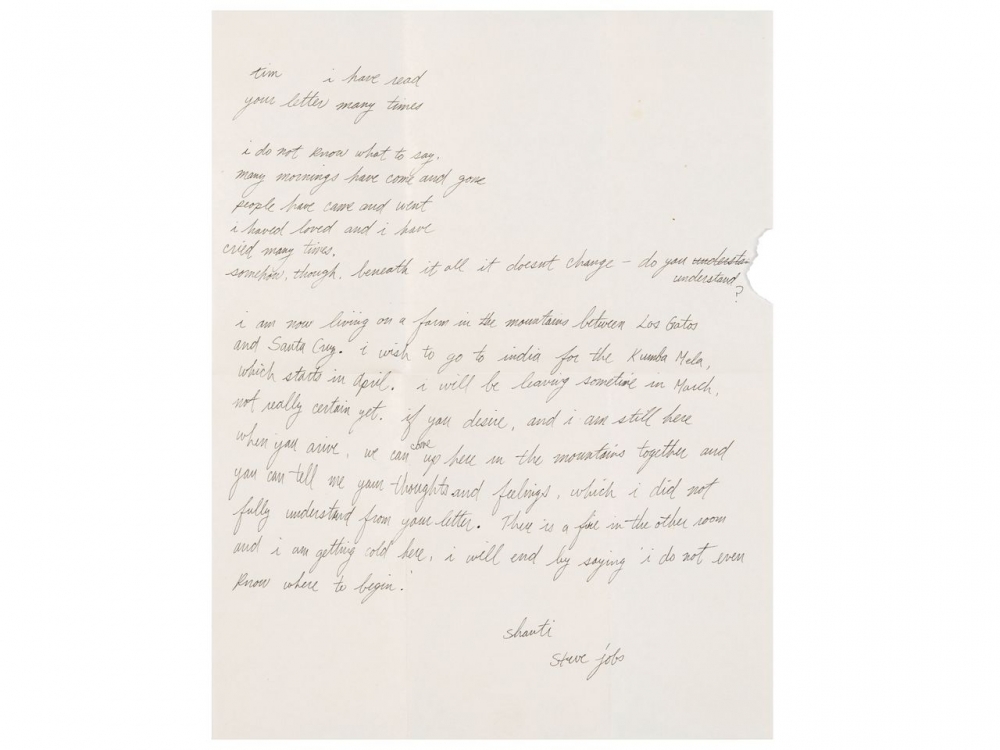 tim i have read
your letter many times
i do not know what to say.
many mornings have come and gone
people have came and went
i haved loved and i have
cried many times.
somehow, though, beneath it all it doesnt change – do you understa
understand
?
i am now living on a farm in the mountains between Los Gatos
and Santa Cruz. i wish to go to india for the Kumba Mela,
which starts in April. i will be leaving sometime in March,
not really certain yet. if you desire, and i am still here
when you arive, we can come up here in the mountains together and
you can tell me your thoughts and feelings, which i did not
fully understand from your letter. There is a fire in the other room
and i am getting cold here, i will end by saying 'i do not even
know where to begin.'
shanti
steve jobs